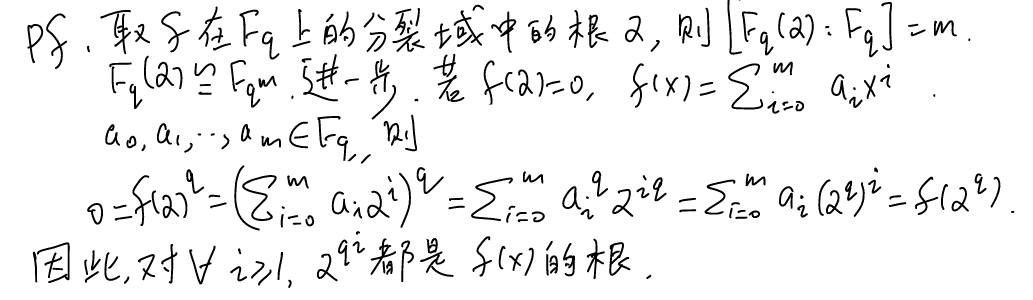 pf. 取 f 在 F_q 上的分裂域中的根 α, 则 [F_q(α):F_q]=m.
F_q(α)≅F_{q^m}. 进一步, 若 f(α)=0, f(x)=∑_{i=0}^{m} a_i x^i.
a_0, a_1, ..., a_m∈F_q, 则
0=f(α)^q=(∑_{i=0}^{m} a_i α^i)^q=∑_{i=0}^{m} a_i^q α^{iq}=∑_{i=0}^{m} a_i (α^q)^i=f(α^q).
因此, 对∀ i≥1, α^{q^i} 都是 f(x) 的根.